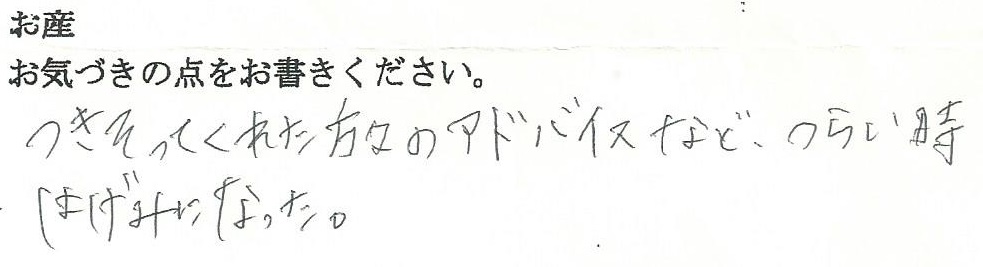 お産
お気づきの点をお書きください。
つきそってくれた方々のアドバイスなど、つらい時
はげみになった。